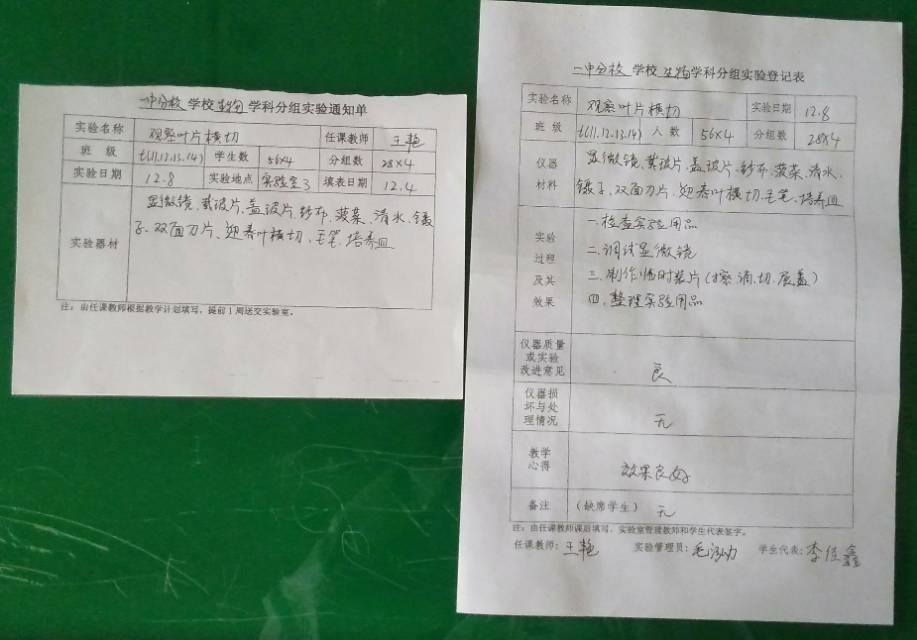 一中分校 学校 生物 学科分组实验通知单
实验名称 观察叶片横切 任课教师 王艳
班 级 七(11.12.13.14) 学生数 56×4 分组数 28×4
实验日期 12.8 实验地点 实验室3 填表日期 12.4
实验器材
显微镜、载玻片、盖玻片、纱布、菠菜、清水、镊
子、双面刀片、迎春叶横切、毛笔、培养皿
注:由任课教师根据教学计划填写,提前1周送交实验室。
一中分校 学校 生物 学科分组实验登记表
实验名称 观察叶片横切 实验日期 12.8
班 级 七(11.12.13.14) 人 数 56×4 分组数 28×4
仪器
材料
显微镜、载玻片、盖玻片、纱布、菠菜、清水、
镊子、双面刀片、迎春叶横切、毛笔、培养皿
实验
过程
及其
效果
一、检查实验用品
二、调试显微镜
三、制作临时装片(擦、滴、切、展、盖)
四、整理实验用品
仪器质量
或实验
改进意见
良
仪器损
坏与处
理情况
无
教学
心得
效果良好
备注 (缺席学生) 无
注:由任课教师课后填写,实验室管理教师和学生代表签字。
任课教师:王艳 实验管理员:毛 学生代表:李佳鑫